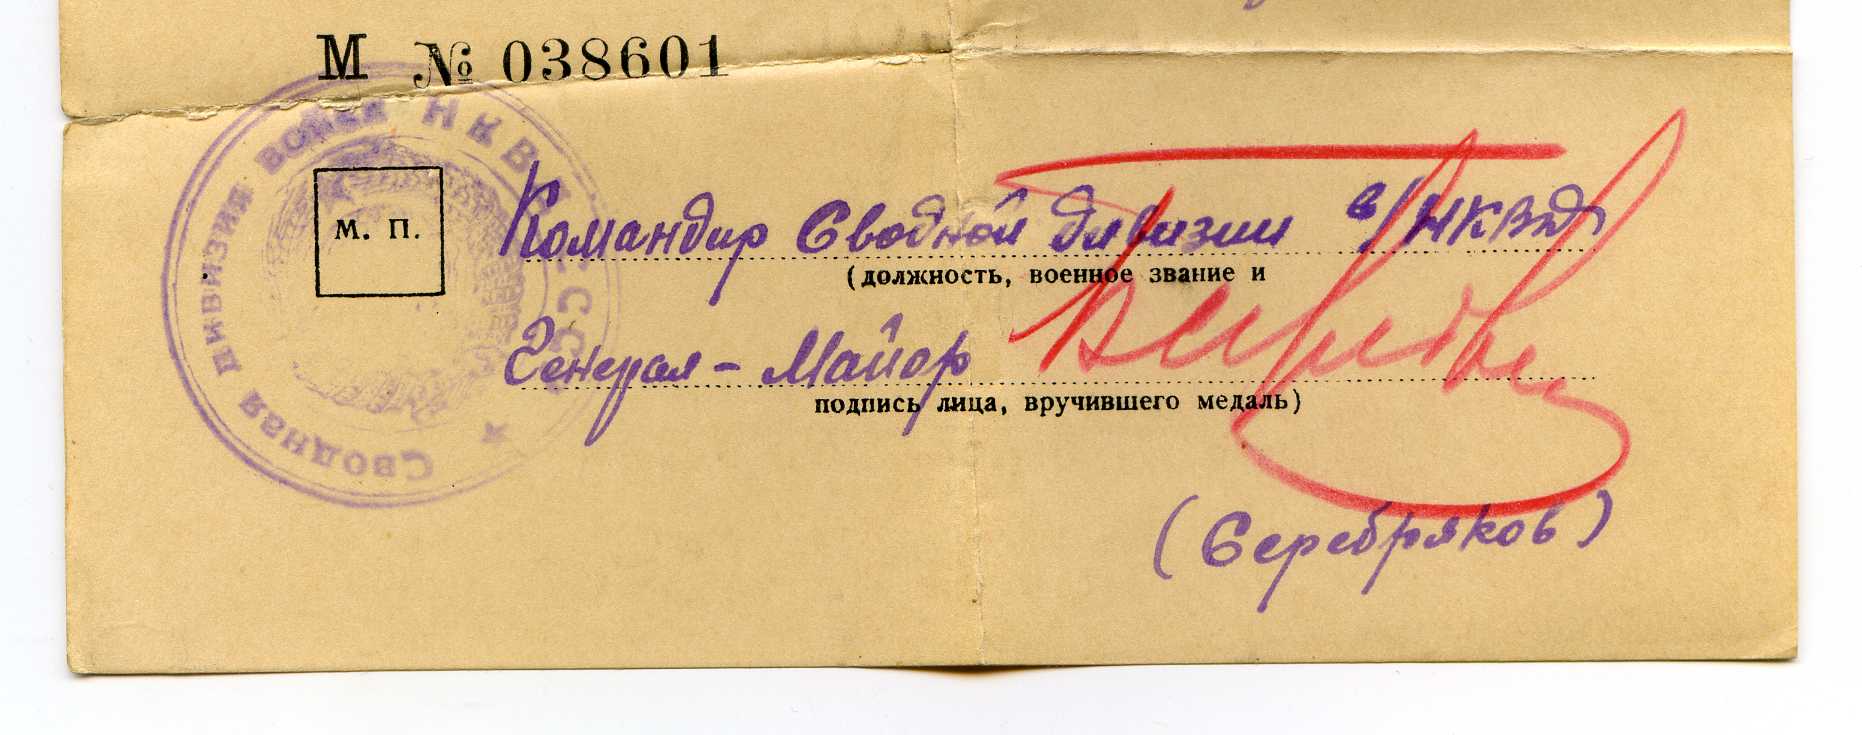 М № 038601
Сводная дивизия войск НКВД СССР
М. П.
Командир Сводной дивизии в/НКВД
(должность, военное звание и
Генерал-Майор
подпись лица, вручившего медаль)
(Серебряков)